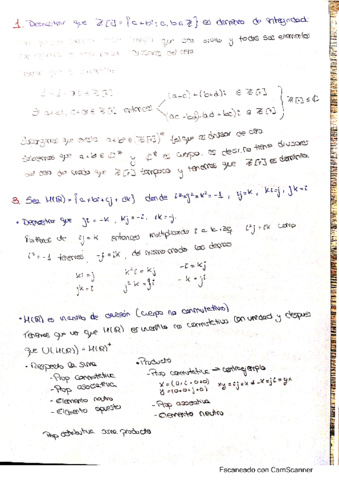 1. Demostrar que Z[i] = {a+bi : a, b ∈ Z} es dominio de integridad.
y todos sus elementos
∈ Z[i]
entonces (a+c)+(b+d)i ∈ Z[i]
(ac-bd)+(ad+bc)i ∈ Z[i]
Z[i] ⊆ C
Supongamos que existe a+bi ∈ Z[i]* tal que es divisor de cero
Sabemos que a+bi ∈ C* y C es cuerpo, es decir, no tiene divisores
del cero de modo que Z[i] tampoco y tenemos que Z[i] es dominio
3. Sea H(R) = {a+bi+cj+dk} donde i²=j²=k²=-1, ij=k, ki=j, jk=i
• Demostrar que ji=-k, kj=-i, ik=-j.
Partimos de ij=k entonces multiplicando i²j=ik como
i²=-1 tenemos -j=ik, del mismo modo las demás
ki=j k²i=kj -i=kj
jk=i j²k=ji -k=ji
• H(R) es anillo de división (cuerpo no conmutativo)
Tenemos que ver que H(R) es anillo no conmutativo con unidad y después
que U(H(R)) = H(R)*
• Respecto la suma
- Prop conmutativa
- Prop asociativa
- Elemento neutro
- Elemento opuesto
• Producto
- Prop conmutativa → contraejemplo
x=(0+i+0+0) xy=ij=k≠-k=ji=yx
y=(0+0+j+0)
- Prop asociativa
- Elemento neutro
Prop distributiva suma producto
Escaneado con CamScanner